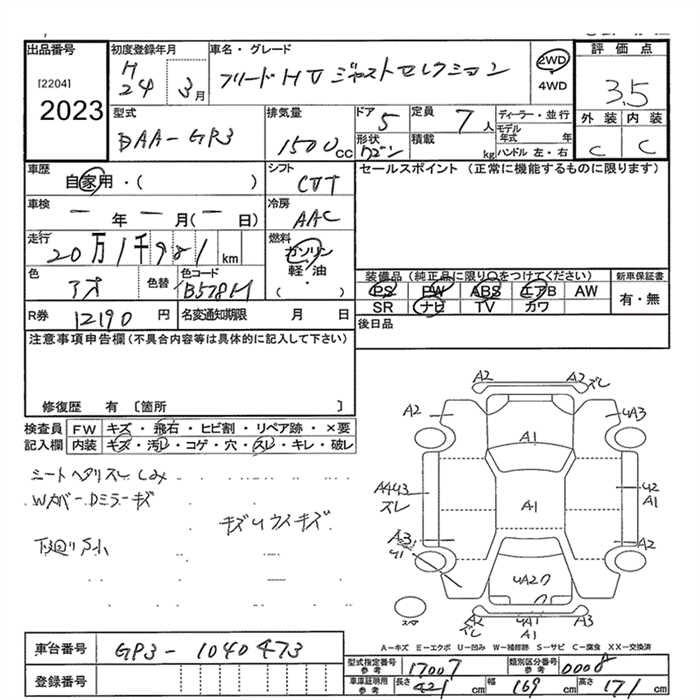 出品番号
[2204]
2023
初度登録年月
H
24 3月
車名・グレード
フリード HV ジャストセレクション
2WD
4WD
評価点
3.5
外装 内装
C C
型式
DAA-GP3
排気量
1500cc
ドア
5
形状
ワゴン
定員
7人
積載
kg
ディーラー・並行
モデル年式 年
ハンドル 左・右
車歴
自家用・( )
シフト
CVT
セールスポイント (正常に機能するものに限ります)
車検
ー年ー月(ー日)
冷房
AAC
走行
20万1千981km
燃料
ガソリン
軽・油
( ・ )
色
アオ
色替
色コード
B578M
装備品 (純正品に限り○をつけてください)
PS PW ABS エアB AW
SR ナビ TV カワ
新車保証書
有・無
R券
12190円
名変通知期限 月 日
後日品
注意事項申告欄 (不具合内容等は具体的に記入して下さい)
修復歴 有 〔箇所 〕
検査員記入欄
FW キズ・飛石・ヒビ割・リペア跡・×要
内装 キズ・汚レ・コゲ・穴・スレ・キレ・破レ
シートヘタリスレ しみ
Wカバー Dミラーキズ
キズ U ウスキズ
下廻り サ小
A2 A2 ズレ
A2 A1 4A3
A443 ズレ A1 42 A1
A3 ミラー 41 A2
4A20
A2 ズレ 4A1 A3
スペア
A-キズ E-エクボ U-凹み W-補修跡 S-サビ C-腐食 XX-交換済
車台番号
GP3-1040473
登録番号
型式指定番号 参考
17007
類別区分番号 参考
0008
車庫証明用 参考
長さ 421cm 幅 169cm 高さ 171cm